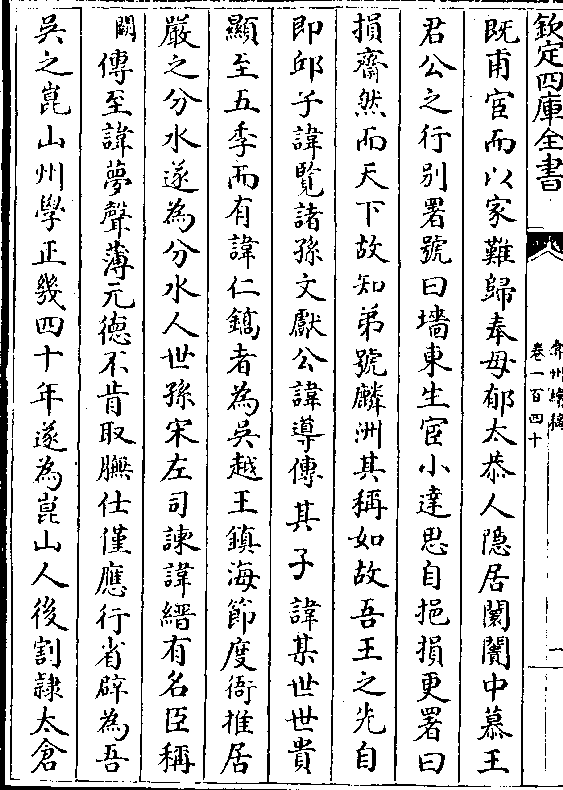 欽定四庫全書
弇州續稿
卷一百四十
一
既甫宦而以家難歸奉母郁太恭人隠居闤闠中慕王
君公之行别署號曰墻東生宦小達思自挹損更署曰
損齋然而天下故知弟號麟洲其稱如故吾王之先自
即邱子諱覽諸孫文獻公諱導傳其子諱某世世貴
顯至五季而有諱仁鎬者為吳越王鎮海節度衙推居
嚴之分水遂為分水人世孫宋左司諫諱縉有名臣稱
闕傳至諱夢聲薄元德不肯取膴仕僅應行省辟為吾
吳之崑山州學正幾四十年遂為崑山人後割隷太倉